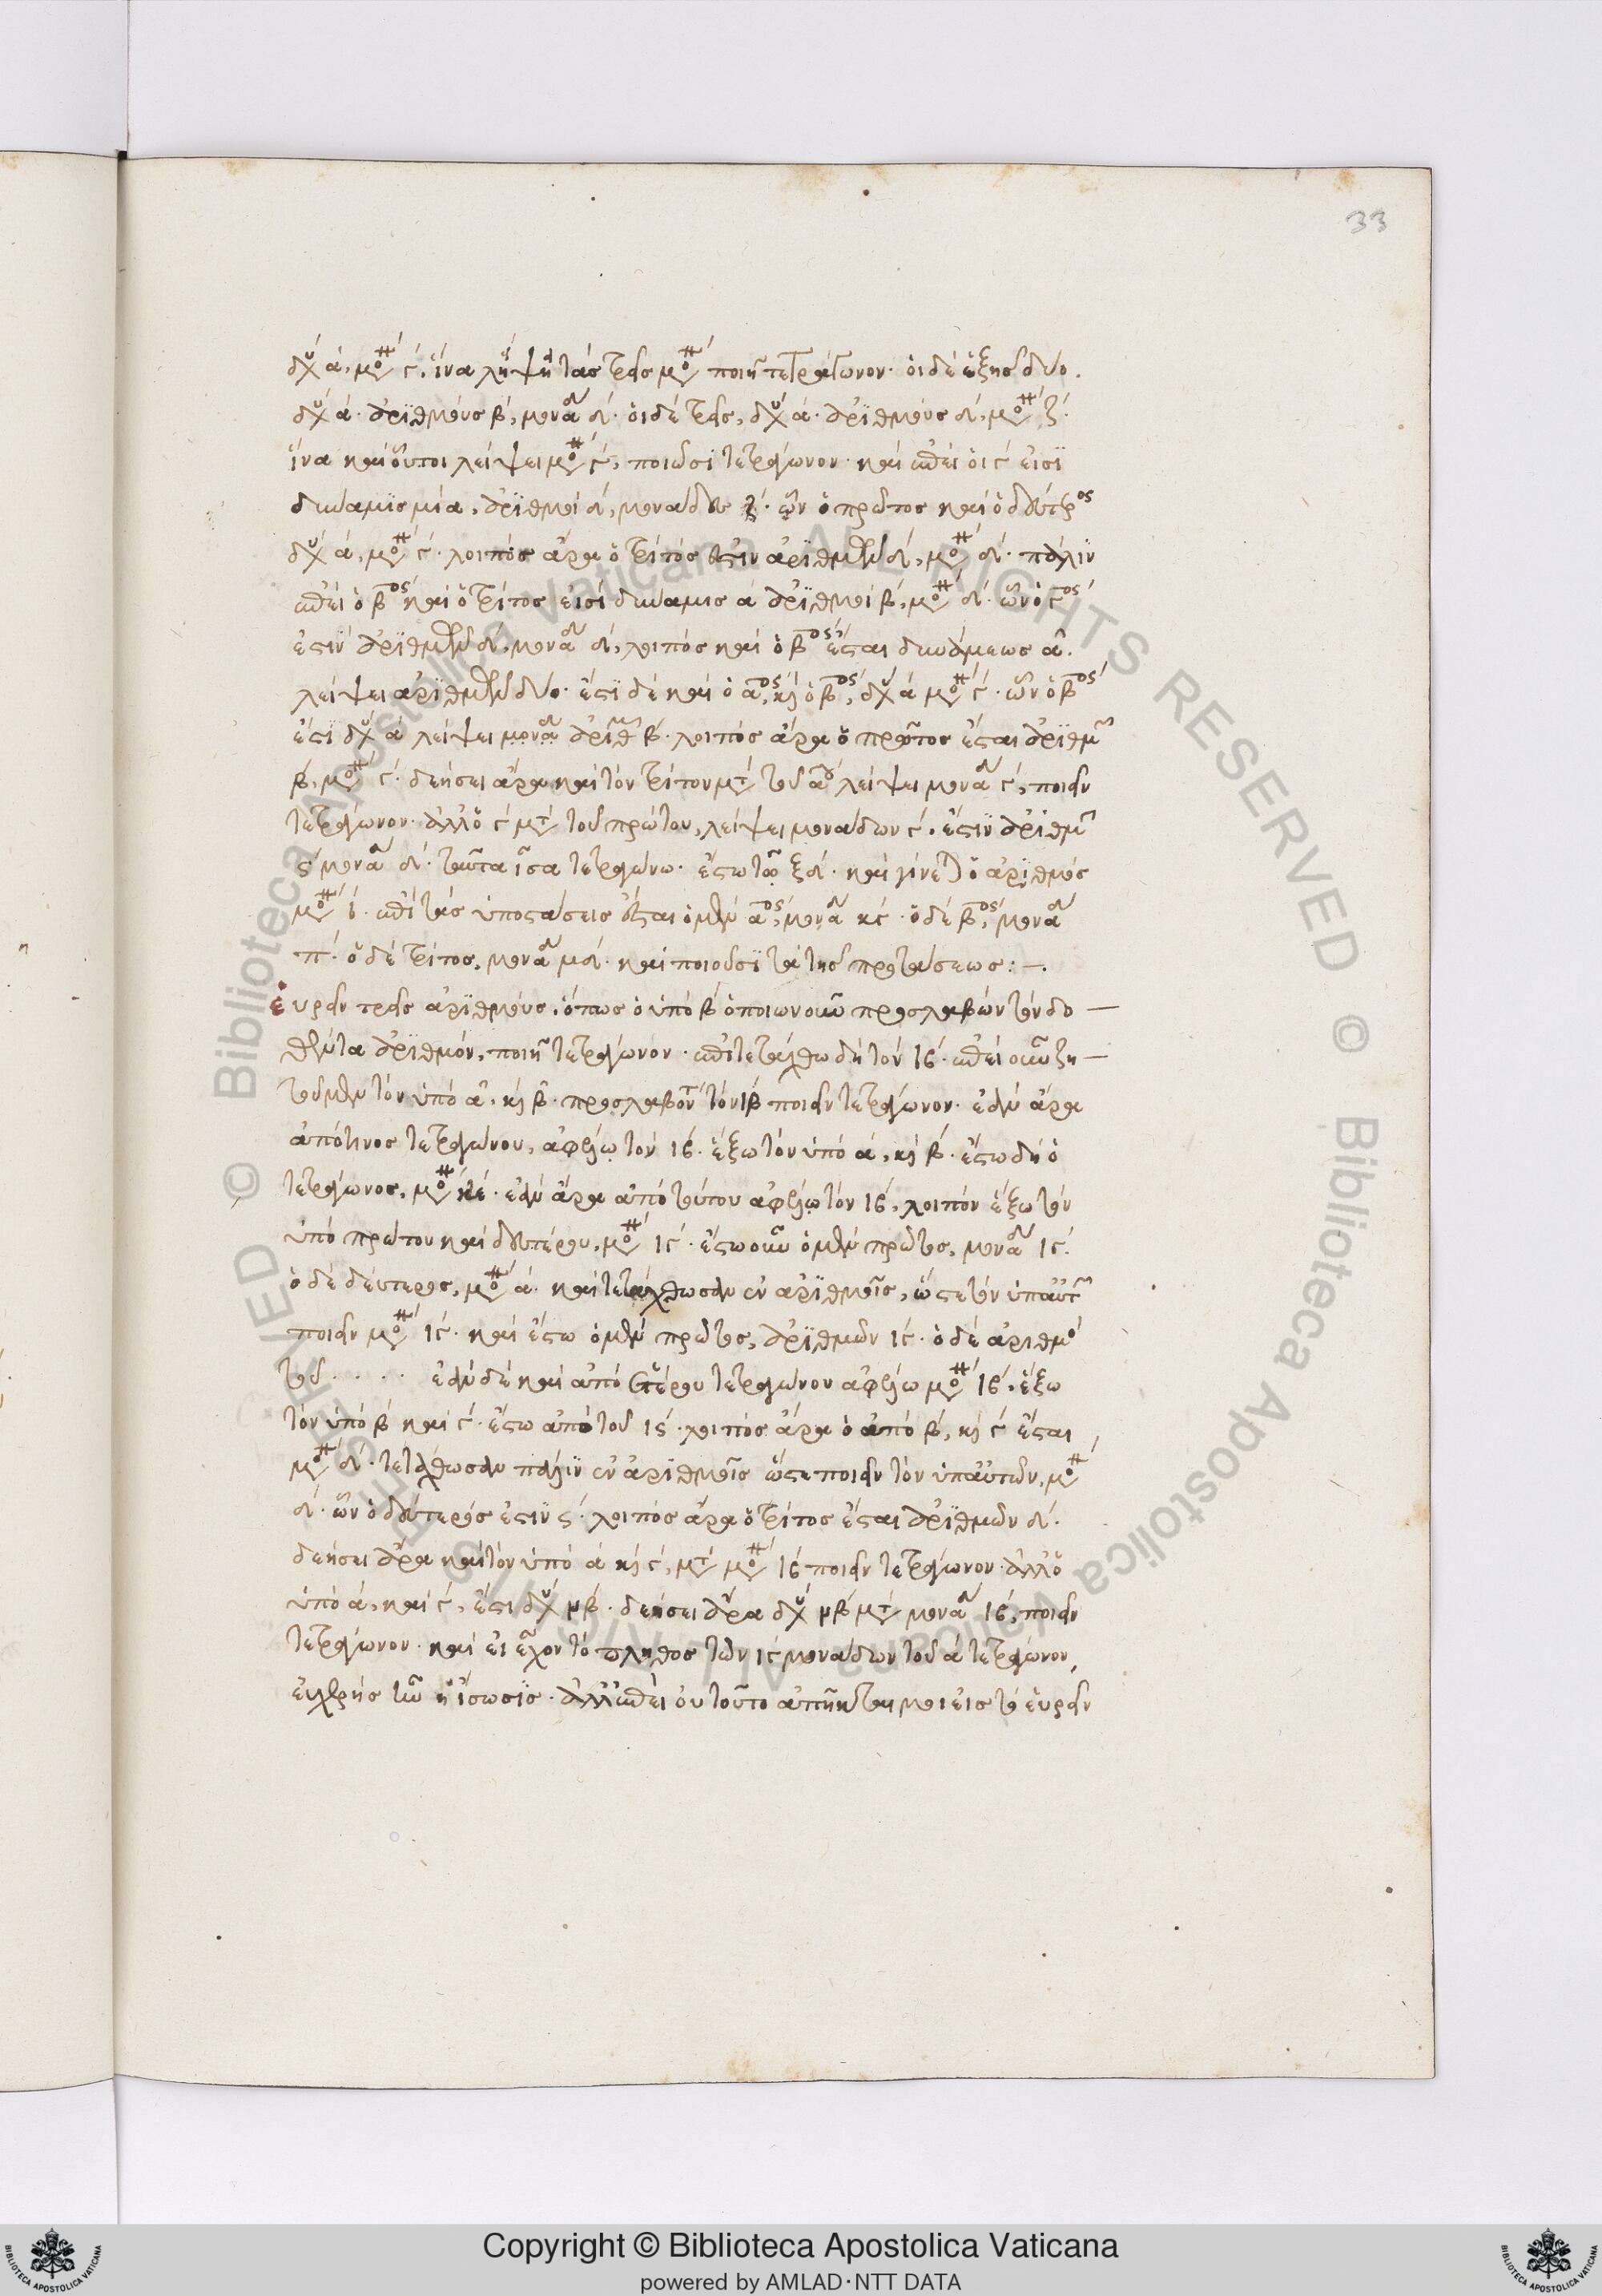 33
δυ̂ ά, μο γ́. ἵνα λήψη τὰς τρεῖς μο ποιῆ τετράγωνον· ὁι δὲ ἑξῆς δύο.
δυ̂ ά· ἀριθμοὺς β́, μονάδ δ́· ὁι δὲ τρεῖς, δυ̂ ά· ἀριθμοὺς δ́, μο ζ́·
ἵνα καὶ οὗτοι λείψει μο γ́, ποιῶσι τετράγωνον· καὶ ἐπεὶ ὁι γ́ εἰσὶ
δυνάμις μία, ἀριθμοὶ δ́, μονάδων ζ́· ὧν ὁ πρῶτος καὶ ὁ δεύτερος
δυ̂ ά, μο γ́· λοιπὸς ἄρα ὁ τρίτος ἐστὶν ἀριθμῶν δ́, μο δ́· πάλιν
ἐπεὶ ὁ βος καὶ ὁ τρίτος εἰσὶ δυναμις ά ἀριθμοὶ β́, μο δ́· ὧν ὁ γος
ἐστὶν ἀριθμῶν δ́, μονάδ δ́, λοιπὸς καὶ ὁ βος ἔσται δυνάμεως ἁ.
λείψει ἀριθμῶν δύο· ἔστι δὲ καὶ ὁ αος, καὶ ὁ βος, δυ̂ ά μο γ́· ὧν ὁ βος
ἐστὶ δυ̂ ά λείψει μονάδ ἀριθμ β́· λοιπὸς ἄρα ὁ πρῶτος ἔσται ἀριθμ
β́, μο γ́· δεήσει ἄρα καὶ τὸν τρίτον μετ τοῦ αου λείψει μονάδ γ́, ποιεῖν
τετράγωνον· ἀλλ ὁ γ́ μετ τοῦ πρώτου, λείψει μονάδων γ́, ἐστὶν ἀριθμ
ς μονάδ δ́· ταῦτα ἴσα τετραγώνω· ἔστω τῶ ξδ́· καὶ γίνεται ὁ ἀριθμός
μο ί· ἐπὶ τὰς ὑποστάσεις ἔσται ὁ μὲν αος, μονάδ κγ́· ὁ δὲ βος, μονάδ
π́· ὁ δὲ τρίτος, μονάδ μδ́· καὶ ποιοῦσι τὰ τῆς προτάσεως :—
ἑυρεῖν τρεῖς ἀριθμοὺς, ὅπως ὁ ὑπὸ β́ ὁποιωνοῦν προσλαβὼν τὸν δο—
θέντα ἀριθμόν, ποιῆ τετράγωνον· ἐπιτετάχθω δὴ τὸν ιβ́· ἐπεὶ οὖν ζη—
τοῦμεν τὸν ὑπὸ ἁ, καὶ β̂· προσλαβόντ τὸν ιβ ποιεῖν τετράγωνον· ἐὰν ἄρα
ἀπό τινος τετραγώνου, ἀφέλω τὸν ιβ́· ἕξω τὸν ὑπὸ ά, καὶ β́· ἔστω δὴ ὁ
τετράγωνος, μο κέ· ἐὰν ἄρα ἀπὸ τούτου ἀφέλω τὸν ιβ́, λοιπὸν ἕξω τὸν
ὑπὸ πρώτου καὶ δευτέρου, μο ιγ́· ἔστω οὖν ὁ μὲν πρῶτος, μονάδ ιγ́.
ὁ δὲ δέυτερος, μο ά· καὶ τετάχθωσαν ἐν ἀριθμοῖς, ὥστε τὸν ὑπ αὐτ
ποιεῖν μο ιγ́· καὶ ἔστω ὁ μὲν πρῶτος, ἀριθμῶν ιγ́· ὁ δὲ ἀριθμο
τοῦ · · · · ἐὰν δὲ καὶ ἀπὸ ἑτέρου τετραγώνου ἀφέλω μο ιβ́, ἕξω
τὸν ὑπὸ β́ καὶ γ́· ἔστω ἀπὸ τοῦ ις· λοιπὸς ἄρα ὁ ἀπὸ β́, καὶ γ́ ἔσται
μο δ́· τετάχθωσαν πάλιν ἐν ἀριθμοῖς ὥστε ποιεῖν τὸν ὑπ αὐτῶν, μο
δ́· ὧν ὁ δεύτερός ἐστιν ς· λοιπὸς ἄρα ὁ τρίτος ἔσται ἀριθμῶν δ́.
δεήσει ἄρα καὶ τὸν ὑπὸ ά καὶ γ́, μετ μο ιβ́ ποιεῖν τετράγωνον· ἀλλ ὁ
ὑπὸ ά, καὶ γ́, ἐστι δυ̂ νβ· δεήσει ἄρα δυ̂ νβ μετ μονάδ ιβ́, ποιεῖν
τετράγωνον· καὶ ει εἶχον τὸ πλῆθος τῶν ιγ μονάδων τοῦ ά τετράγωνον,
ἐυχερὴς ἦν ἡ ἴσωσις· ἀλλ ἐπεὶ ου τοῦτο ἀπῆκται μοι εἰς τὸ ἑυρεῖν
Copyright © Biblioteca Apostolica Vaticana
powered by AMLAD·NTT DATA